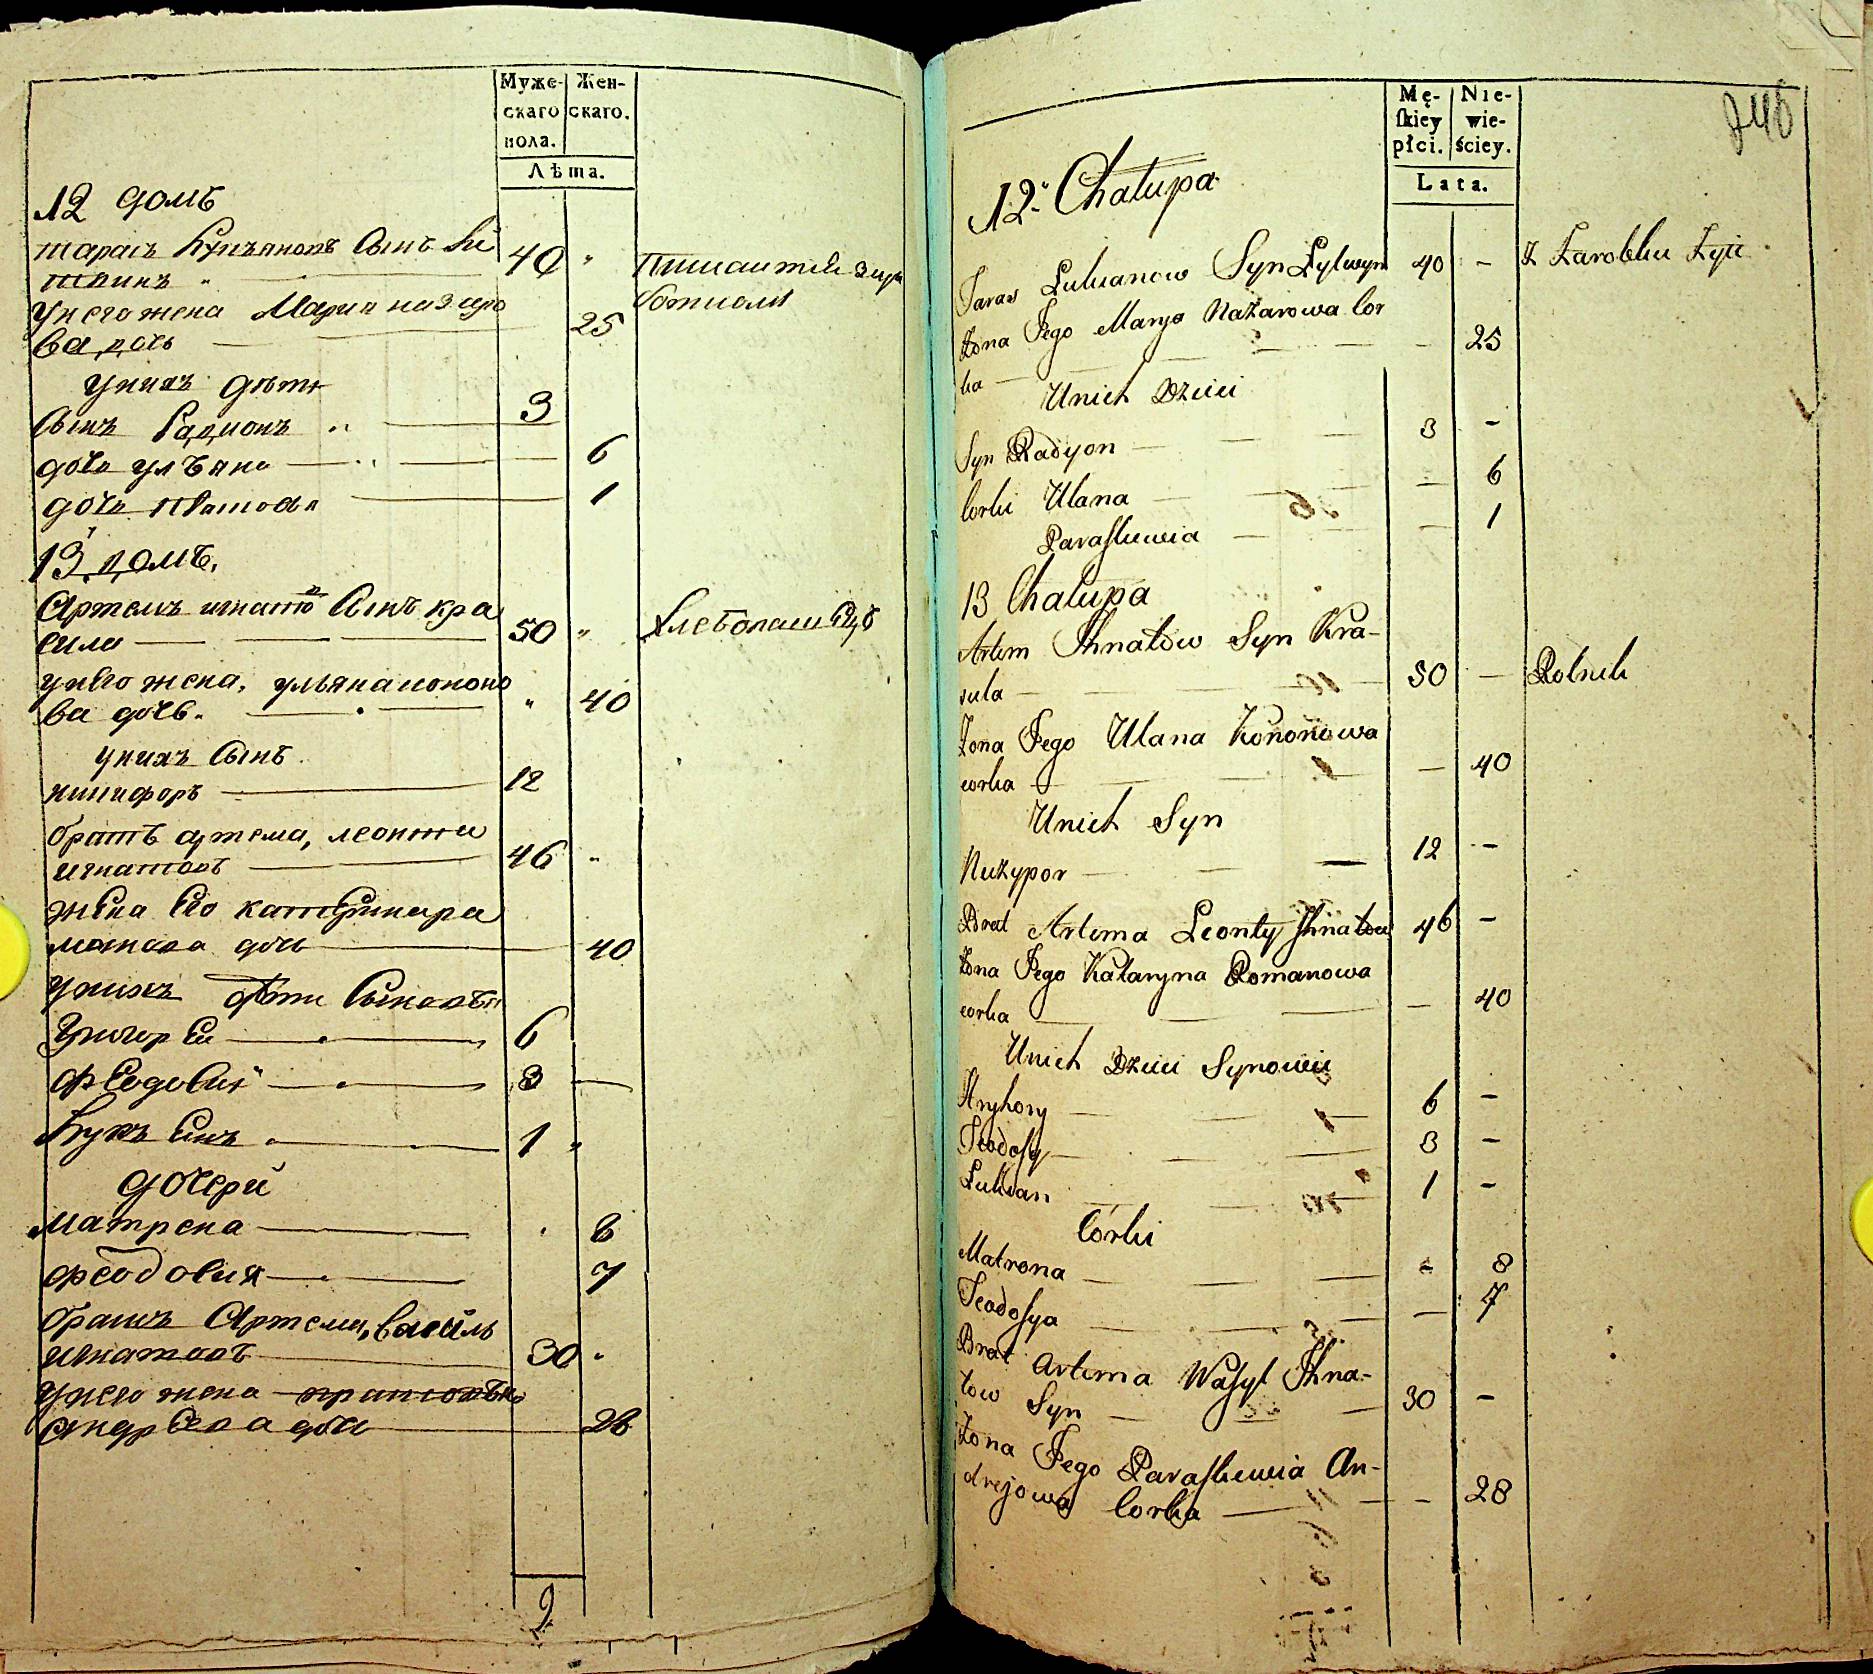 Муже- Жен-
скаго скаго.
пола.
Лѣта.
12 домъ
тарасъ Лукъяновъ Сынъ Ли
твинъ 40 "
унего жена Мария назаро
ва дочь 25
унихъ дѣти
Сынъ Радионъ 3
дочь ульяна 6
дочь 1
13 домъ.
Артемъ игнатовъ Сынъ кра
сила 50 " хлебопашецъ
унего жена, ульяна кононо
ва дочь. " 40
унихъ Сынъ
никифоръ 12
братъ артема, леонти
игнатовъ 46 "
жена Его катерина ра
манова дочь 40
унихъ дѣти Сыновья
григорEй 6
феодосий 3
Лукъянъ 1 "
дочери
матрена 8
феодосия 7
братъ Артема, василь
игнатовъ 30 "
унего жена
андрѣева дочь 28
9
Mę- Nie-
skiey wie-
płci. ściey.
Lata.
12. Chałupa
Taras Lukianow Syn Lytwyn 40 - Z Zarobku Żyie
Żona Jego Marya Nazarowa Cor
ka 25
Unich Dzieci
Syn Radyon 3 -
Corki Ulana - 6
Paraskiewia - 1
13 Chałupa
Artem Ihnatow Syn Kra-
sula 50 - Rolnik
Żona Jego Ulana Kononowa
corka - 40
Unich Syn
Nikypor 12 -
Brat Artema Leonty Ihnatow 46 -
Żona Jego Kataryna Romanowa
corka - 40
Unich Dzieci Synowie
Hryhory 6 -
Teodosy 3 -
Lukian 1 -
Córki
Matrona - 8
Teodosya - 7
Brat Artema Wasyl Ihna-
tow Syn 30 -
Żona Jego Paraskiewia An-
drejowa Corka - 28